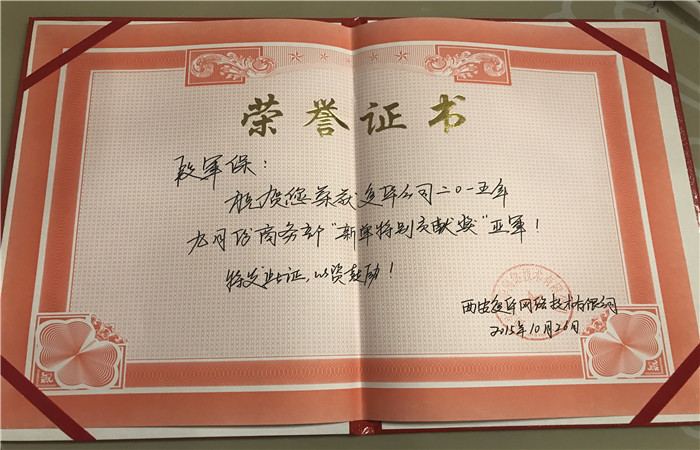 荣誉证书
段军保：
祝贺您荣获连环公司二〇一五年
九月份商务部"新军特别贡献奖"亚军！
特发此证，以资鼓励！
西安连环网络技术有限公司
2015年10月26日